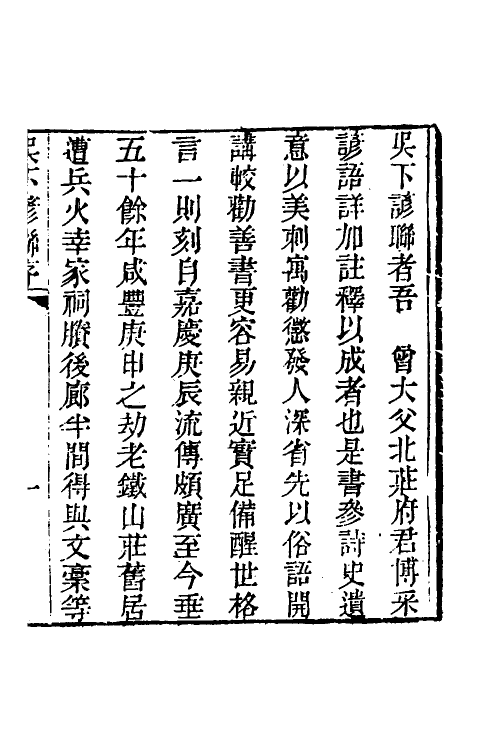 吳下諺聯者吾　曾大父北莊府君博采
諺語詳加註釋以成者也是書參詩史遺
意以美刺寓勸懲發人深省先以俗語開
講較勸善書更容易親近實足備醒世格
言一則刻自嘉慶庚辰流傳頗廣至今垂
五十餘年咸豐庚申之劫老鐵山莊舊居
遭兵火幸家祠賸後廊半間得與文稾等
吳下諺聯序
一